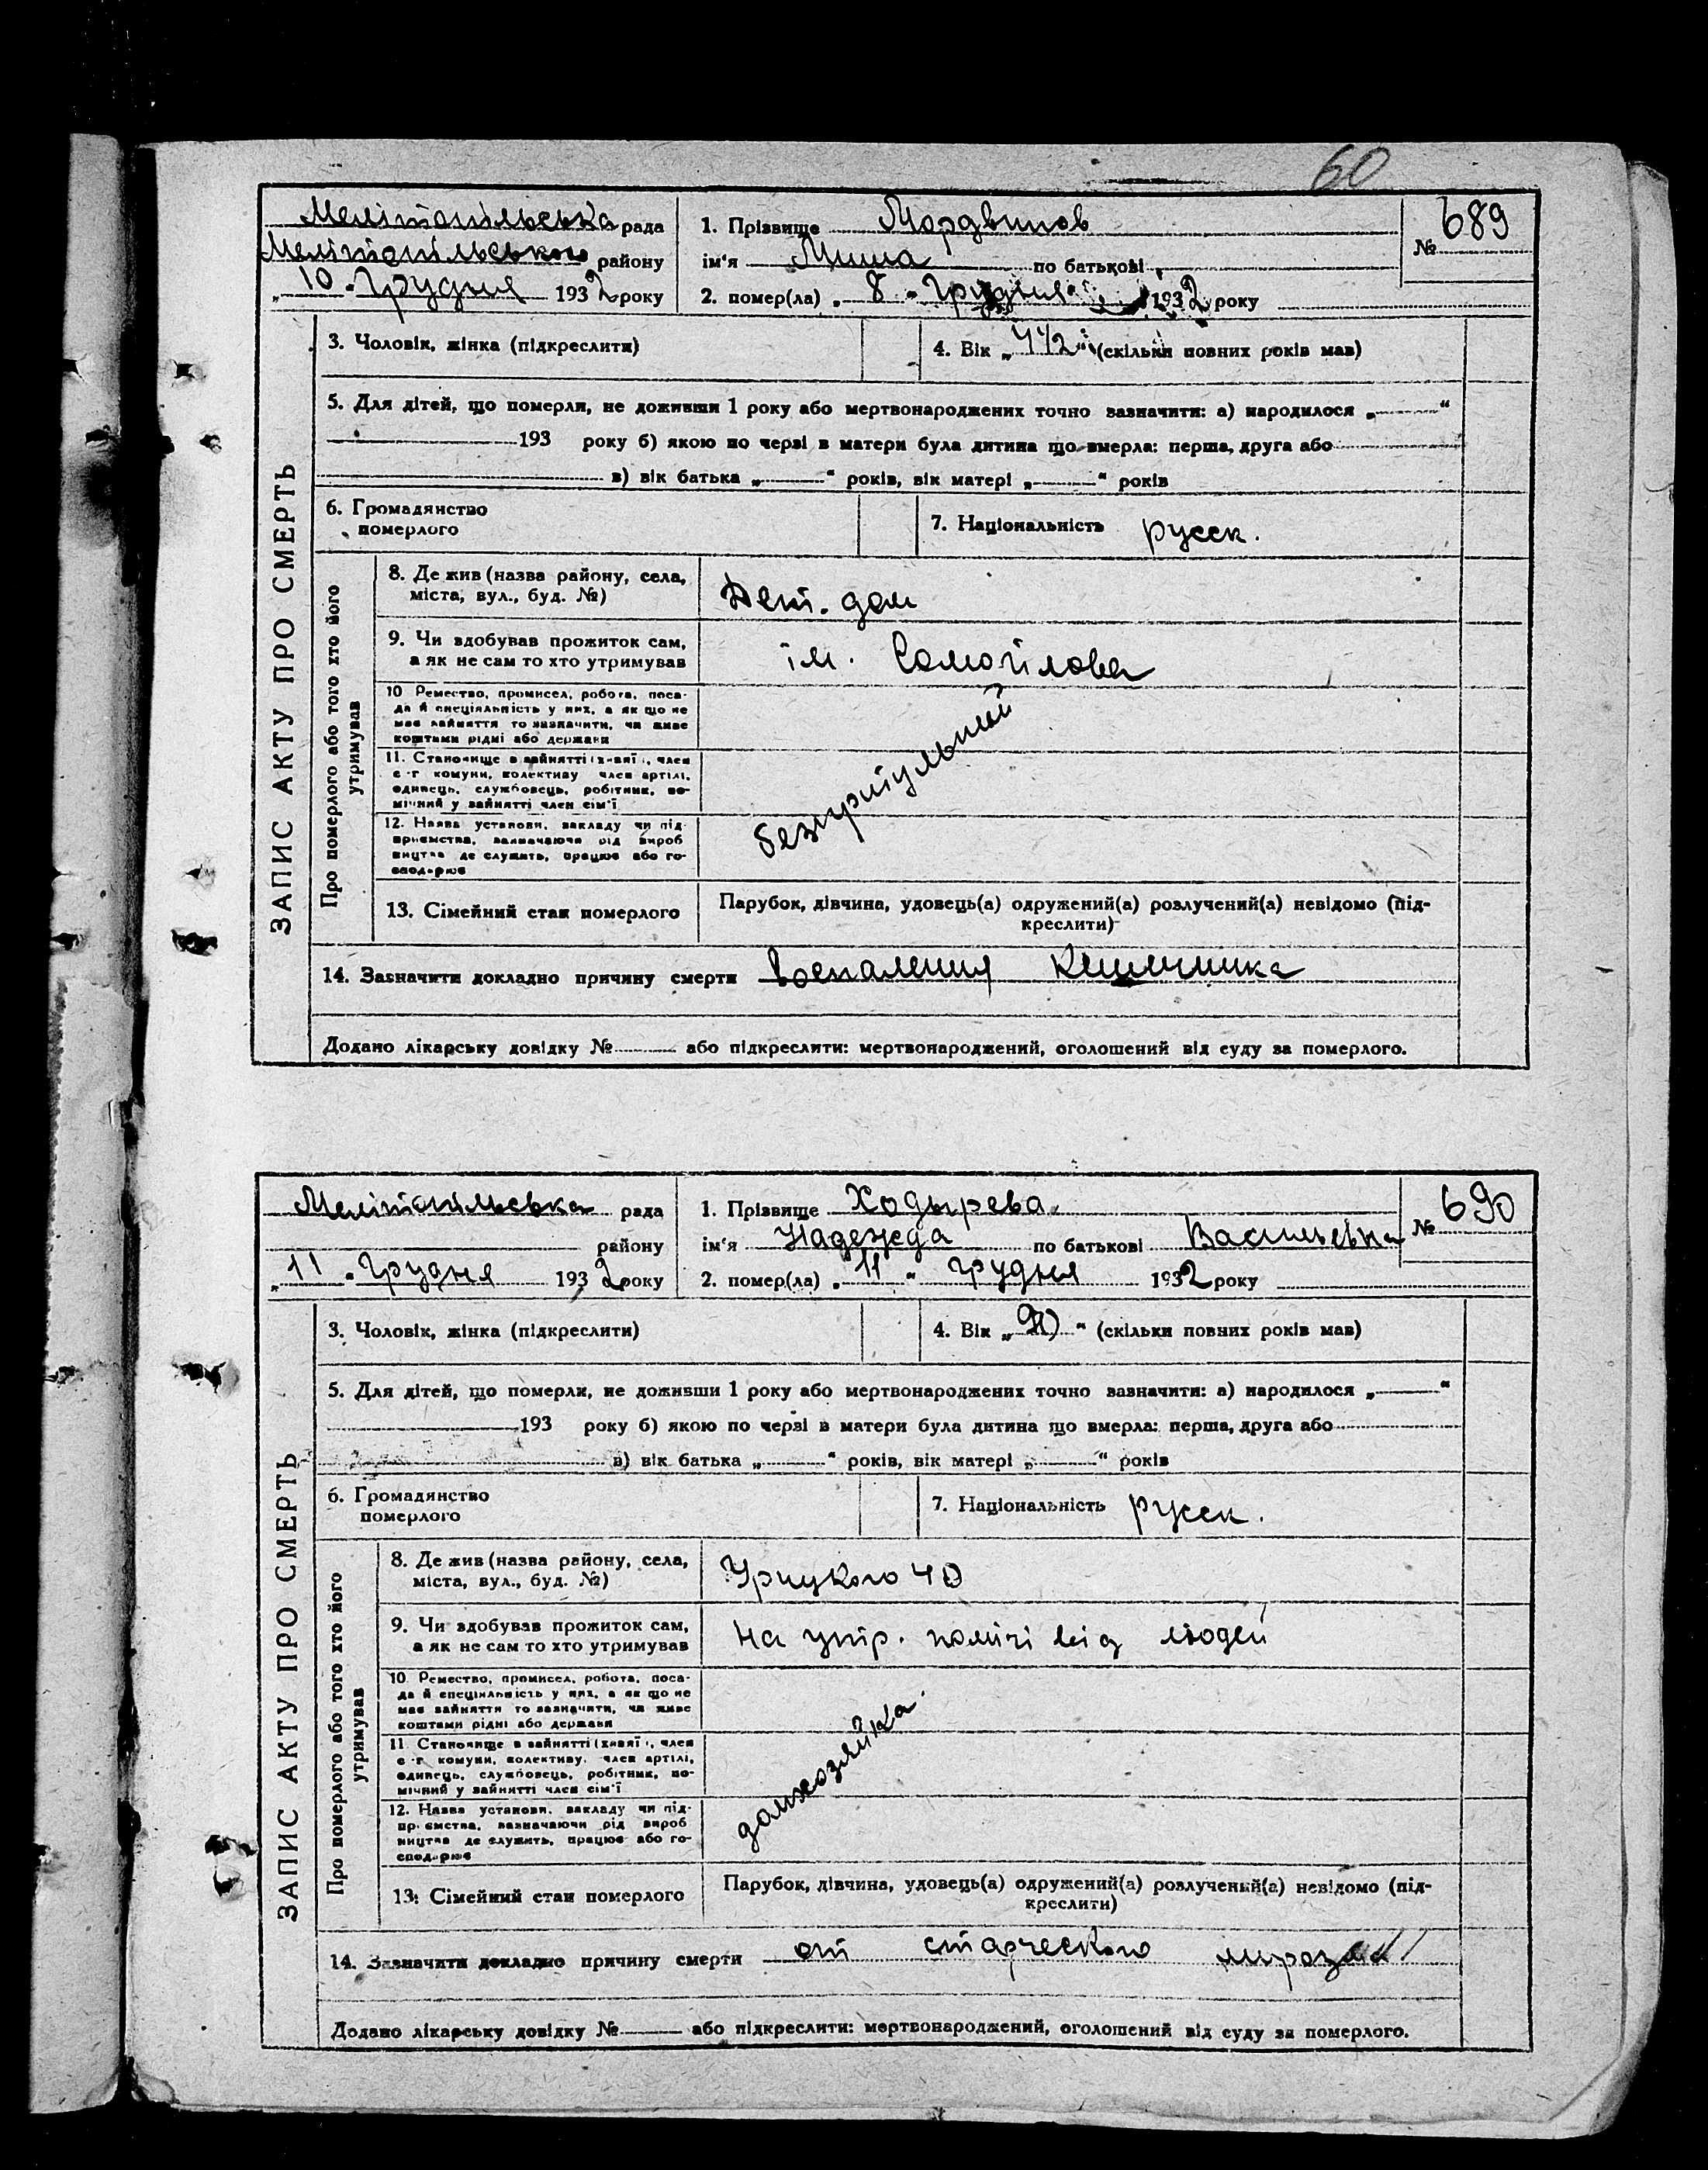 60
Мелітопільська рада
Мелітопільського району
„10" Грудня 1932 року
1. Прізвище Мордвинов
ім'я Миша по батькові
2. помер(ла) „8" Грудня 1932 року
№ 689
ЗАПИС АКТУ ПРО СМЕРТЬ
3. Чоловік, жінка (підкреслити)
4. Вік „4 1/2" (скільки повних років мав)
5. Для дітей, що померли, не доживши 1 року або мертвонароджених точно зазначити: а) народилося „ "
193 року б) якою по черзі в матери була дитина що вмерла: перша, друга або
в) вік батька „ " років, вік матері „ " років
6. Громадянство
померлого
7. Національність русск.
Про померлого або того хто його
утримував
8. Де жив (назва району, села,
міста, вул., буд. №)
Дет. дом
9. Чи здобував прожиток сам,
а як не сам то хто утримував
ім. Самойлова
10 Ремество, промисел, робота, поса-
да й спеціяльність у них, а як що не
має вайняття то зазначити, чи живе
коштами рідні або держави
11. Становище в вайнятті (хазяї), член
с-г комуни, колективу член артілі,
одинець, службовець, робітник, по-
мічний у вайнятті член сім'ї
12. Назва установи, закладу чи під-
приємства, зазначаючи рід вироб
ництва де служить, працює або го-
сподарює
безпритульний
13. Сімейний стан померлого
Парубок, дівчина, удовець(а) одружений(а) розлучений(а) невідомо (під-
креслити)
14. Зазначити докладно причину смерти Воспаления Кишечника
Додано лікарську довідку № або підкреслити: мертвонароджений, оголошений від суду за померлого.
Мелітопільська рада
району
„11" Грудня 1932 року
1. Прізвище Ходырева
ім'я Надежда по батькові Васильевна
2. помер(ла) „11" Грудня 1932 року
№ 690
ЗАПИС АКТУ ПРО СМЕРТЬ
3. Чоловік, жінка (підкреслити)
4. Вік „90" (скільки повних років мав)
5. Для дітей, що померли, не доживши 1 року або мертвонароджених точно зазначити: а) народилося „ "
193 року б) якою по черзі в матери була дитина що вмерла: перша, друга або
в) вік батька „ " років, вік матері „ " років
6. Громадянство
померлого
7. Національність русск.
Про померлого або того хто його
утримував
8. Де жив (назва району, села,
міста, вул., буд. №)
Урицкого 40
9. Чи здобував прожиток сам,
а як не сам то хто утримував
На утр. помічі від людей
10. Ремество, промисел, робота, поса-
да й спеціяльність у них, а як що не
має вайняття то зазначити, чи живе
коштами рідні або держави
11. Становище в вайнятті (хазяї), член
с-г комуни, колективу, член артілі,
одинець, службовець, робітник, по-
мічний у вайнятті член сім'ї
12. Назва установи, закладу чи під-
приємства, зазначаючи рід вироб
ництва де служить, працює або го-
сподарює
домхозяйка
13. Сімейний стан померлого
Парубок, дівчина, удовець(а) одружений(а) розлучений(а) невідомо (під-
креслити)
14. Зазначити докладно причину смерти от старческого
Додано лікарську довідку № або підкреслити: мертвонароджений, оголошений від суду за померлого.